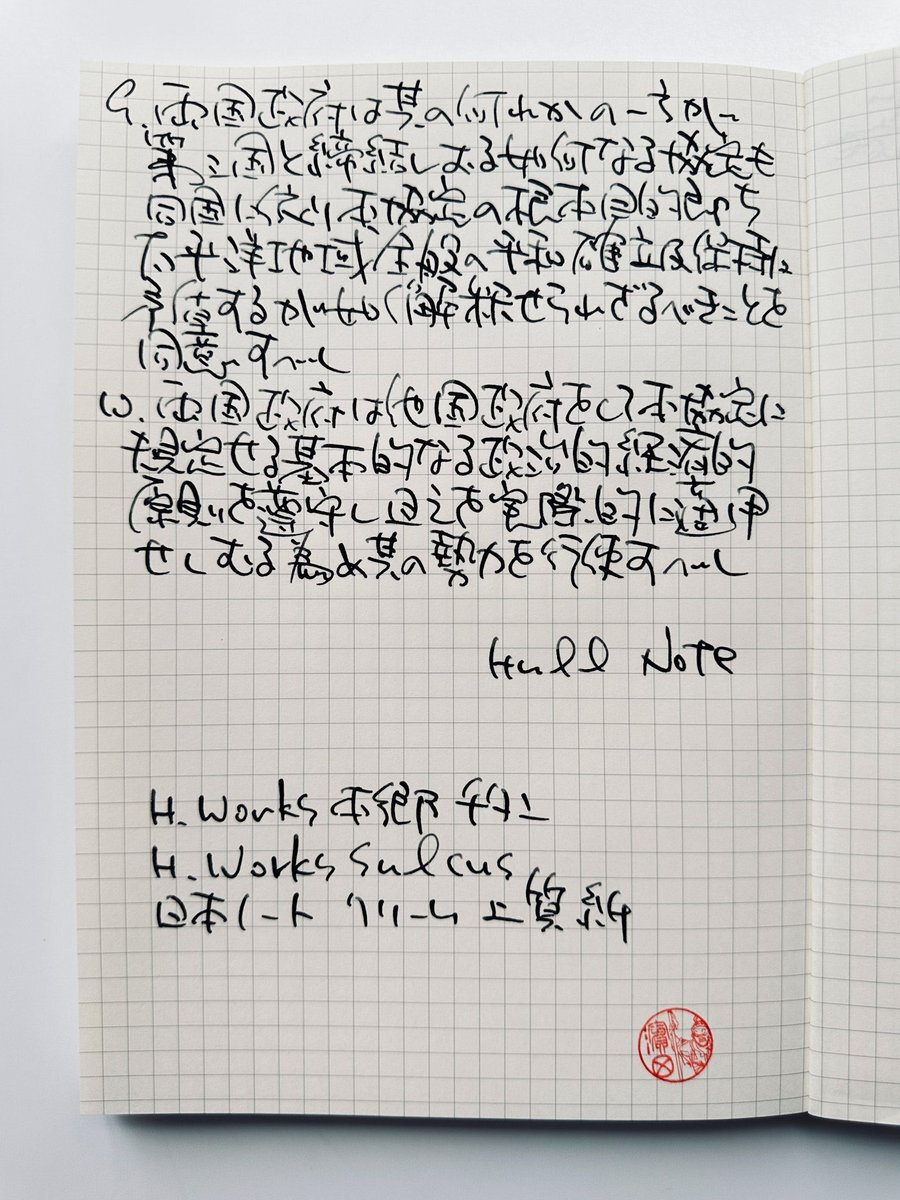 9. 両国政府は其の何れかの一方か
第三国と締結しおる如何なる協定も
同国に依り本協定の根本目的即ち
太平洋地域全般の平和確立及保持に
矛盾するか如く解釈せられざるべきことを
同意すべし
10. 両国政府は他国政府をして本協定に
規定せる基本的なる政治的経済的
原則を遵守し且之を実際的に適用
せしむる為め其の勢力を行使すべし
Hull Note
H. Works
H. Works Sulcus
日本ノート クリーム上質紙
濱田